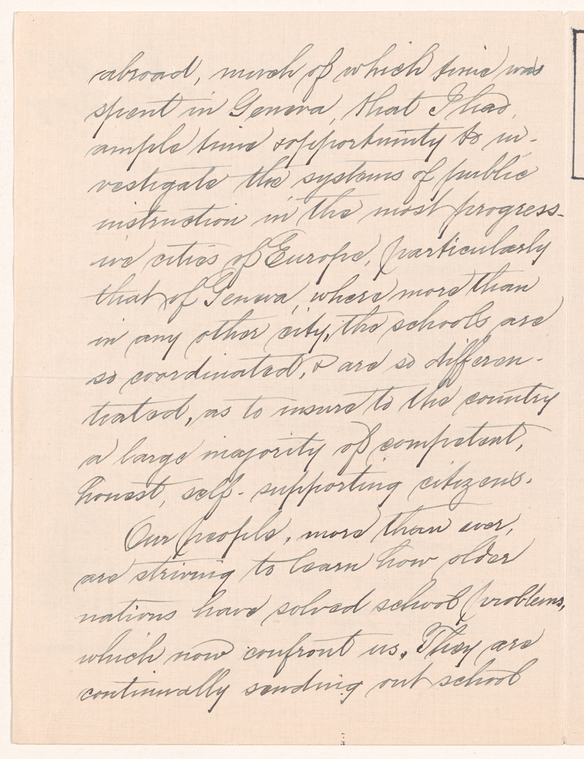 abroad, much of which time was
spent in Geneva, that I had
ample time & opportunity to in-
vestigate the systems of public
instruction in the most progress-
ive cities of Europe, particularly
that of Geneva where more than
in any other city, the schools are
so coordinated, & are so differen-
tiated, as to insure to the country
a large majority of competent,
honest, self-supporting citizens.
Our people, more than ever,
are striving to learn how older
nations have solved school problems,
which now confront us. They are
continually sending out school